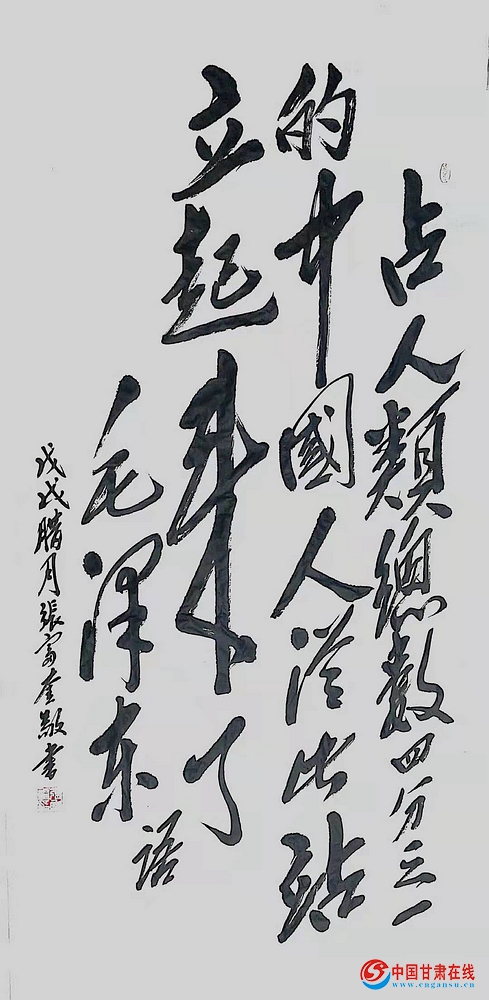 占人類總數四分之一
的中國人從此站
立起來了
毛澤东
语
戊戌腊月張富奎敬書
中国甘肃在线
www.cngansu.cn